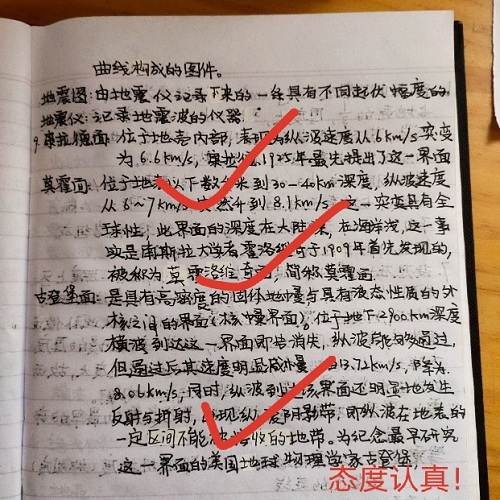 曲线构成的图件。
地震图:由地震仪记录下来的一条具有不同起伏幅度的
地震仪:记录地震波的仪器。
9.康拉德面:位于地壳内部,表现为纵波速度从6km/s突变
为6.6km/s,康拉德1925年最先提出了这一界面
莫霍面:位于地表以下数 米到30-40km深度,纵波速度
从6~7km/s 升到8.1km/s 这一突变具有全
球性;此界面的深度在大陆深,在海洋浅,这一事
实是南斯拉夫学者霍洛维奇于1909年首先发现的,
被称为莫霍洛维奇面,简称莫霍面
古登堡面:是具有高密度的固体地幔与具有液态性质的外
核之间的界面(核幔界面),位于地下2900km深度
横波到达这一界面即告消失,纵波能够通过,
但通过后其速度明显减慢 13.72km/s,降为
8.06km/s,同时,纵波到达该界面还明显地发生
反射与折射,出现纵波阴影带,即纵波在地表的
一定区间不能被接收的地带。为纪念最早研究
这一界面的美国地球物理学家古登堡,
态度认真!